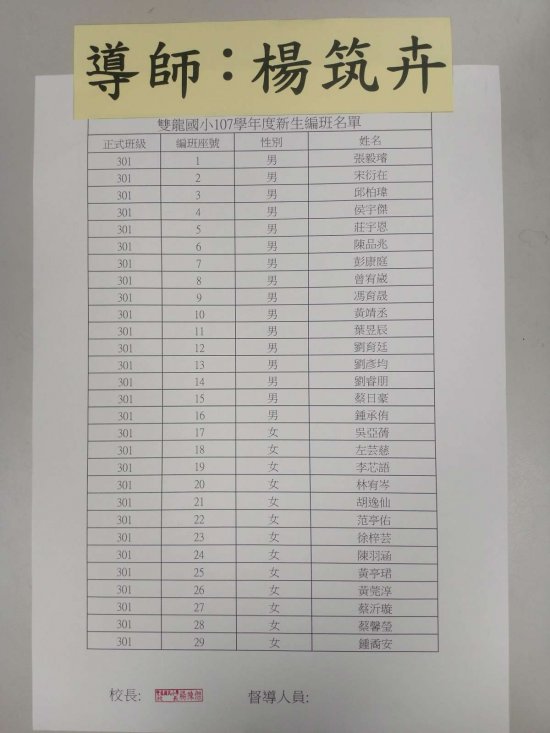 導師：楊筑卉
雙龍國小107學年度新生編班名單
正式班級 編班座號 性別 姓名
301 1 男 張毅璿
301 2 男 宋衍在
301 3 男 邱柏瑋
301 4 男 侯宇傑
301 5 男 莊宇恩
301 6 男 陳品兆
301 7 男 彭康庭
301 8 男 曾宥崴
301 9 男 馮育晟
301 10 男 黃靖丞
301 11 男 葉昱辰
301 12 男 劉育廷
301 13 男 劉彥均
301 14 男 劉睿朋
301 15 男 蔡日豪
301 16 男 鍾承侑
301 17 女 吳亞蒨
301 18 女 左芸慈
301 19 女 李芯語
301 20 女 林宥岑
301 21 女 胡逸仙
301 22 女 范亭佑
301 23 女 徐梓芸
301 24 女 陳羽涵
301 25 女 黃亭珺
301 26 女 黃莞淳
301 27 女 蔡沂璇
301 28 女 蔡馨瑩
301 29 女 鍾喬安
校長: 督導人員: